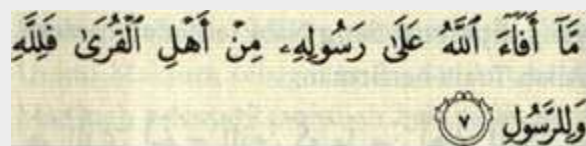 مَّآ أَفَآءَ ٱللَّهُ عَلَىٰ رَسُولِهِۦ مِنْ أَهْلِ ٱلْقُرَىٰ فَلِلَّهِ
وَلِلرَّسُولِ ٧